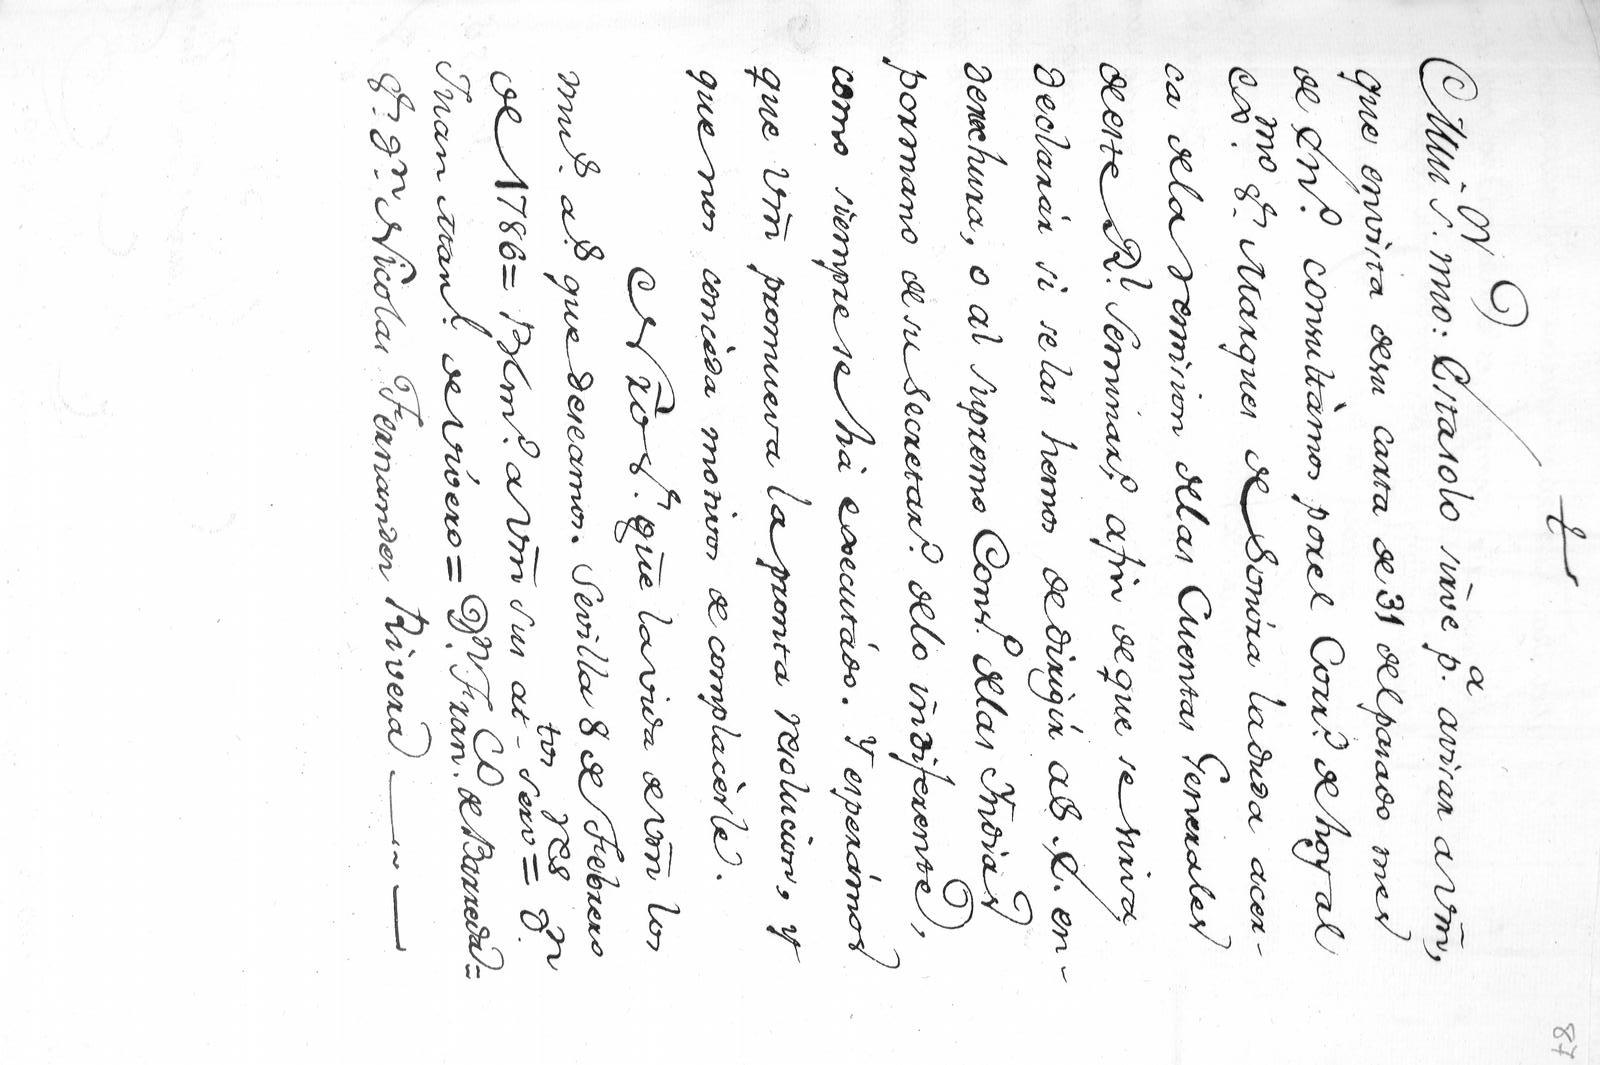 87
Mui S.or mio: Esta solo sirve p.a avisar a Vm̄,
que en vista de su carta de 31 del pasado mes
de En.o consultàmos por el Corr.o de hoy al
ex.mo S.r Marques de Sonóra la duda acer-
ca de la remision de las Cuentas Generales
de este R.l Seminar.o a fin de que se sirva
declarár si se las hemos de dirigír a S. E. en
derechura, o al supremo Cons.o de las Yndias
por mano de su Secretar.o de lo indiferente,
como siempre se hà executádo. Y esperámos
que Vm̄ promueva la pronta resolucion, y
que nos concéda motivos de complacèrle.
Ntrō S.r gūe la vida de Vm̄ los
mu.s a.s que deseamos. Sevilla 8 de Febrero
de 1786 = BLm.o a Vm̄ sus at.tos serv.res = D.n
Juan Man.l de Vivero = D.n Fran.co de Barreda =
S.r D.n Nicolas Fernandez Rivera